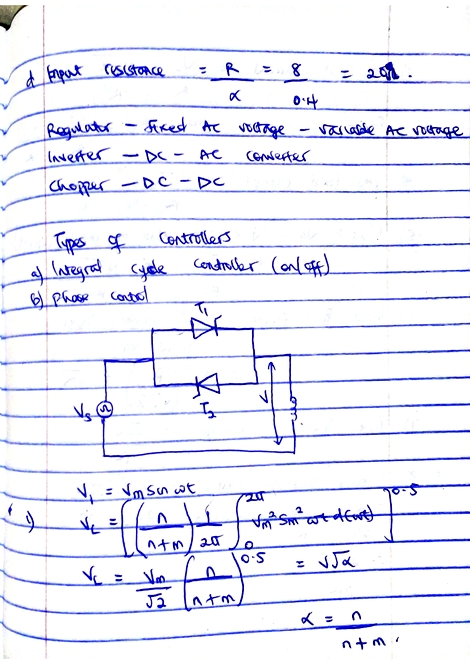 d Input resistance = R/α = 8/0.4 = 20Ω.
Regulator – fixed AC voltage – variable AC voltage
Inverter – DC – AC converter
Chopper – DC – DC
Types of controllers
a) Integral cycle controller (on/off)
b) Phase control
T₁
T₂
Vs
V
V₁ = Vm sin ωt
1) V_L = [(n/(n+m)) 1/2π ∫₀^2π Vm² Sin² ωt d(ωt)]^0.5
V_L = Vm/√2 [n/(n+m)]^0.5 = V√α
α = n/(n+m).